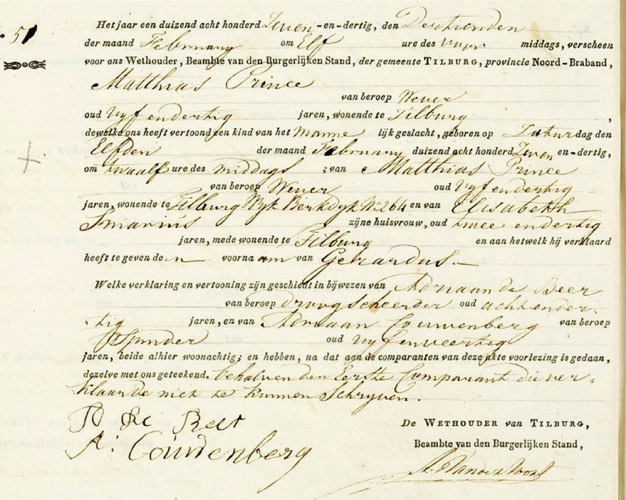 51
Het jaar een duizend acht honderd Zeven-en-dertig, den Dertienden
der maand February om Elf ure des voor middags, verscheen
voor ons Wethouder, Beambte van den Burgerlijken Stand, der gemeente TILBURG, provincie Noord-Braband,
Matthias Prince
van beroep Wever
oud Vyf endertig jaren, wonende te Tilburg ,
dewelke ons heeft vertoond een kind van het Manne lijk geslacht, geboren op Zaturdag den
Elfden der maand February duizend acht honderd Zeven en-dertig,
om twaalf ure des middags ; van Matthias Prince
van beroep Wever oud Vyf endertig
jaren, wonende te Tilburg Wyk Berkdyk No 264 en van Elisabeth
Smarius zijne huisvrouw, oud twee endertig
jaren, mede wonende te Tilburg en aan hetwelk hij verklaard
heeft te geven de n voorna am van Gerardus.
Welke verklaring en vertooning zijn geschied in bijwezen van Adriaan de Beer
van beroep droogscheerder oud achtender-
tig jaren, en van Adriaan Couwenberg van beroep
Spinder oud Vyfenveertig
jaren, beide alhier woonachtig; en hebben, na dat aan de comparanten van deze akte voorlezing is gedaan,
dezelve met ons geteekend. behalven den Eerste Comparant die ver-
klaarde niet te kunnen Schryven.
De WETHOUDER van TILBURG,
Beambte van den Burgerlijken Stand,
A: Couwenberg